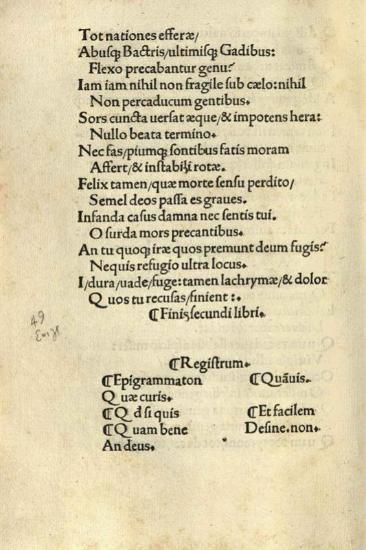 Tot nationes efferæ/
Abusq; Bactris/ultimisq; Gadibus:
Flexo precabantur genu?
Iam iam nihil non fragile sub cælo: nihil
Non percaducum gentibus.
Sors cuncta uersat æque/& impotens hera:
Nullo beata termino.
Nec fas/piumq; sontibus fatis moram
Affert/& instabili rotæ.
Felix tamen/quæ morte sensu perdito/
Semel deos passa es graues.
Infanda casus damna nec sentis tui.
O surda mors precantibus.
An tu quoq; iræ quos premunt deum fugis?
Nequis refugio ultra locus.
I/dura/uade/fuge: tamen lachrymæ/& dolor
Quos tu recusas/finient :.
⸿Finis secundi libri.
49
⸿Registrum.
⸿Epigrammaton ⸿Quāuis.
Quæ curis.
⸿Qd si quis ⸿Et facilem
⸿Quam bene Desine.non.
An deus.